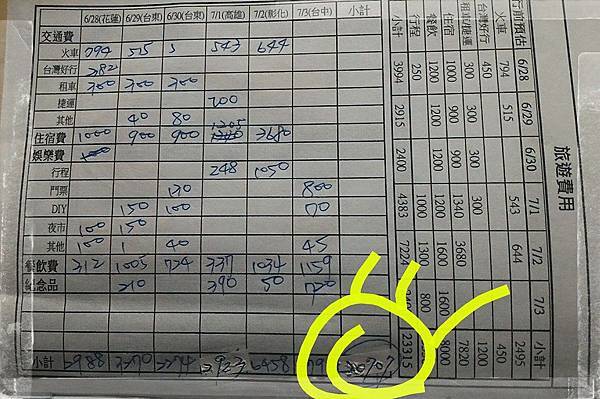 6/28(花蓮) 6/29(台東) 6/30(台東) 7/1(高雄) 7/2(彰化) 7/3(台中) 小計
交通費
火車 794 515 5 543 644
台灣好行 382
租車 300 300 300
捷運 200
其他 40 80
住宿費 1000 900 900 1205 3680
娛樂費
行程 248 1050
門票 800
DIY 150 100 70
夜市 100 150
其他 100 1 40 45
餐飲費 312 1005 724 337 1034 1159
紀念品 210 390 50 720
小計 2988 3270 2274 2923 6458 20707
旅遊費用
行前預估 6/28 6/29 6/30 7/1 7/2 7/3 小計
火車 794 515 543 644 2495
台灣好行 450 450
租車/捷運 300 300 300 300 1200
住宿 1000 900 900 1340 3680 7820
餐飲 1200 1200 1200 1200 1600 1600 8000
行程 250 1000 1300 800
小計 3994 2915 2400 4383 7224 23315